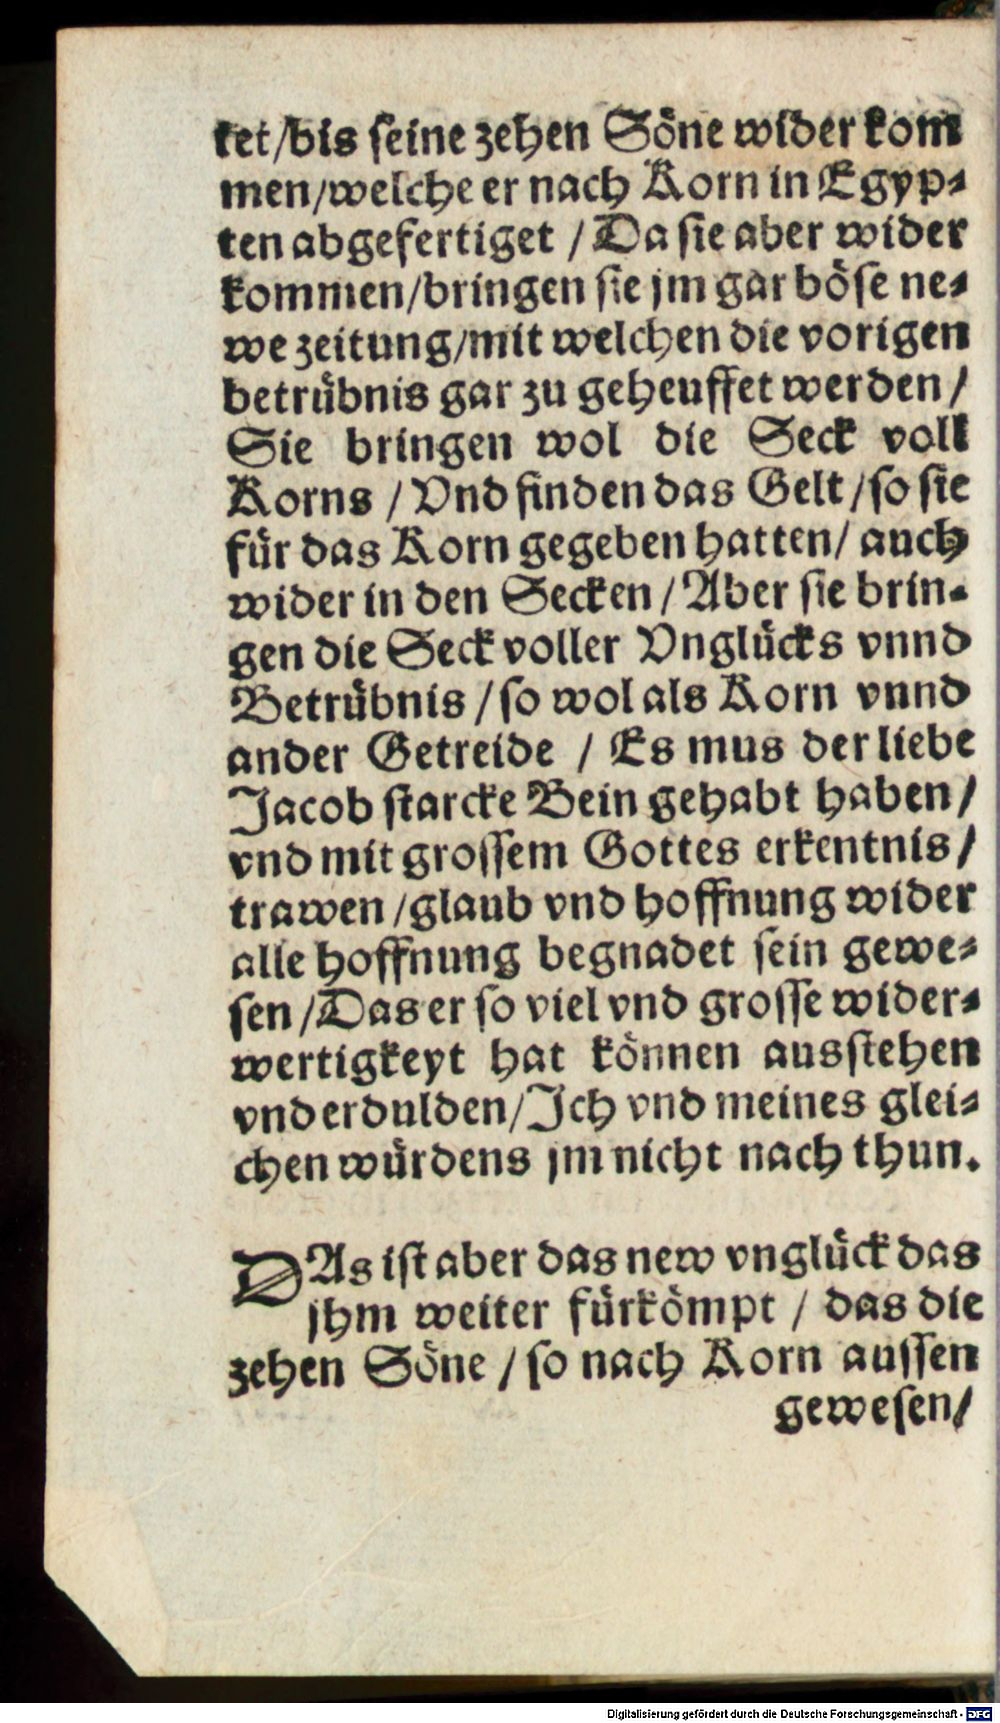 tet/bis seine zehen Söne wider kom
men/welche er nach Korn in Egyp-
ten abgefertiget / Da sie aber wider
kommen/bringen sie jm gar böse ne-
we zeitung/mit welchen die vorigen
betrübnis gar zu geheuffet werden /
Sie bringen wol die Seck voll
Korns / Vnd finden das Gelt / so sie
für das Korn gegeben hatten / auch
wider in den Secken / Aber sie brin-
gen die Seck voller Vnglücks vnnd
Betrübnis / so wol als Korn vnnd
ander Getreide / Es mus der liebe
Jacob starcke Bein gehabt haben /
vnd mit grossem Gottes erkentnis /
trawen / glaub vnd hoffnung wider
alle hoffnung begnadet sein gewe-
sen / Das er so viel vnd grosse wider-
wertigkeyt hat können ausstehen
vnd erdulden / Ich vnd meines glei-
chen würdens jm nicht nach thun.
DAs ist aber das new vnglück das
jhm weiter fürkömpt / das die
zehen Söne / so nach Korn aussen
gewesen/
Digitalisierung gefördert durch die Deutsche Forschungsgemeinschaft - DFG